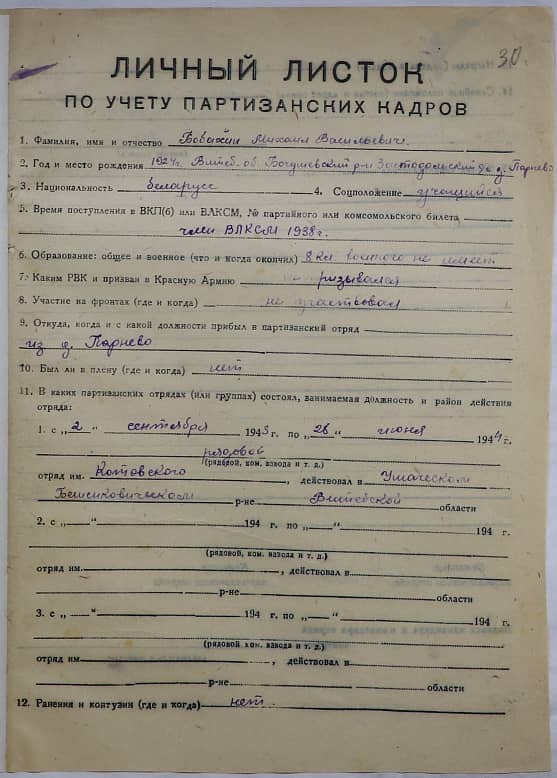 30.
ЛИЧНЫЙ ЛИСТОК
ПО УЧЕТУ ПАРТИЗАНСКИХ КАДРОВ
1. Фамилия, имя и отчество Михаил Васильевич.
2. Год и место рождения 1924г. Витеб. об. Богушевский р-н д. Парнево
3. Национальность беларусс 4. Соцположение учащийся
5. Время поступления в ВКП(б) или ВЛКСМ, № партийного или комсомольского билета
член ВЛКСМ 1938 г.
6. Образование: общее и военное (что и когда окончил) 8 кл. военого не имеет
7. Каким РВК и призван в Красную Армию не призывался
8. Участие на фронтах (где и когда) не участвовал
9. Откуда, когда и с какой должности прибыл в партизанский отряд
из д. Парнево
10. Был ли в плену (где и когда) нет
11. В каких партизанских отрядах (или группах) состоял, занимаемая должность и район действия
отряда:
1. с „2“ сентября 1943 г. по „28“ июня 1944 г.
рядовой
(рядовой, ком. взвода и т. д.)
отряд им. Котовского, действовал в Ушачском
Бешенковическом р-не Витебской области
2. с „ “ 194 г. по „ “ 194 г.
(рядовой, ком. взвода и т. д.)
отряд им. , действовал в
р-не области
3. с „ “ 194 г. по „ “ 194 г.
(рядовой, ком. взвода и т. д.)
отряд им. , действовал в
р-не области
12. Ранения и контузии (где и когда) нет.